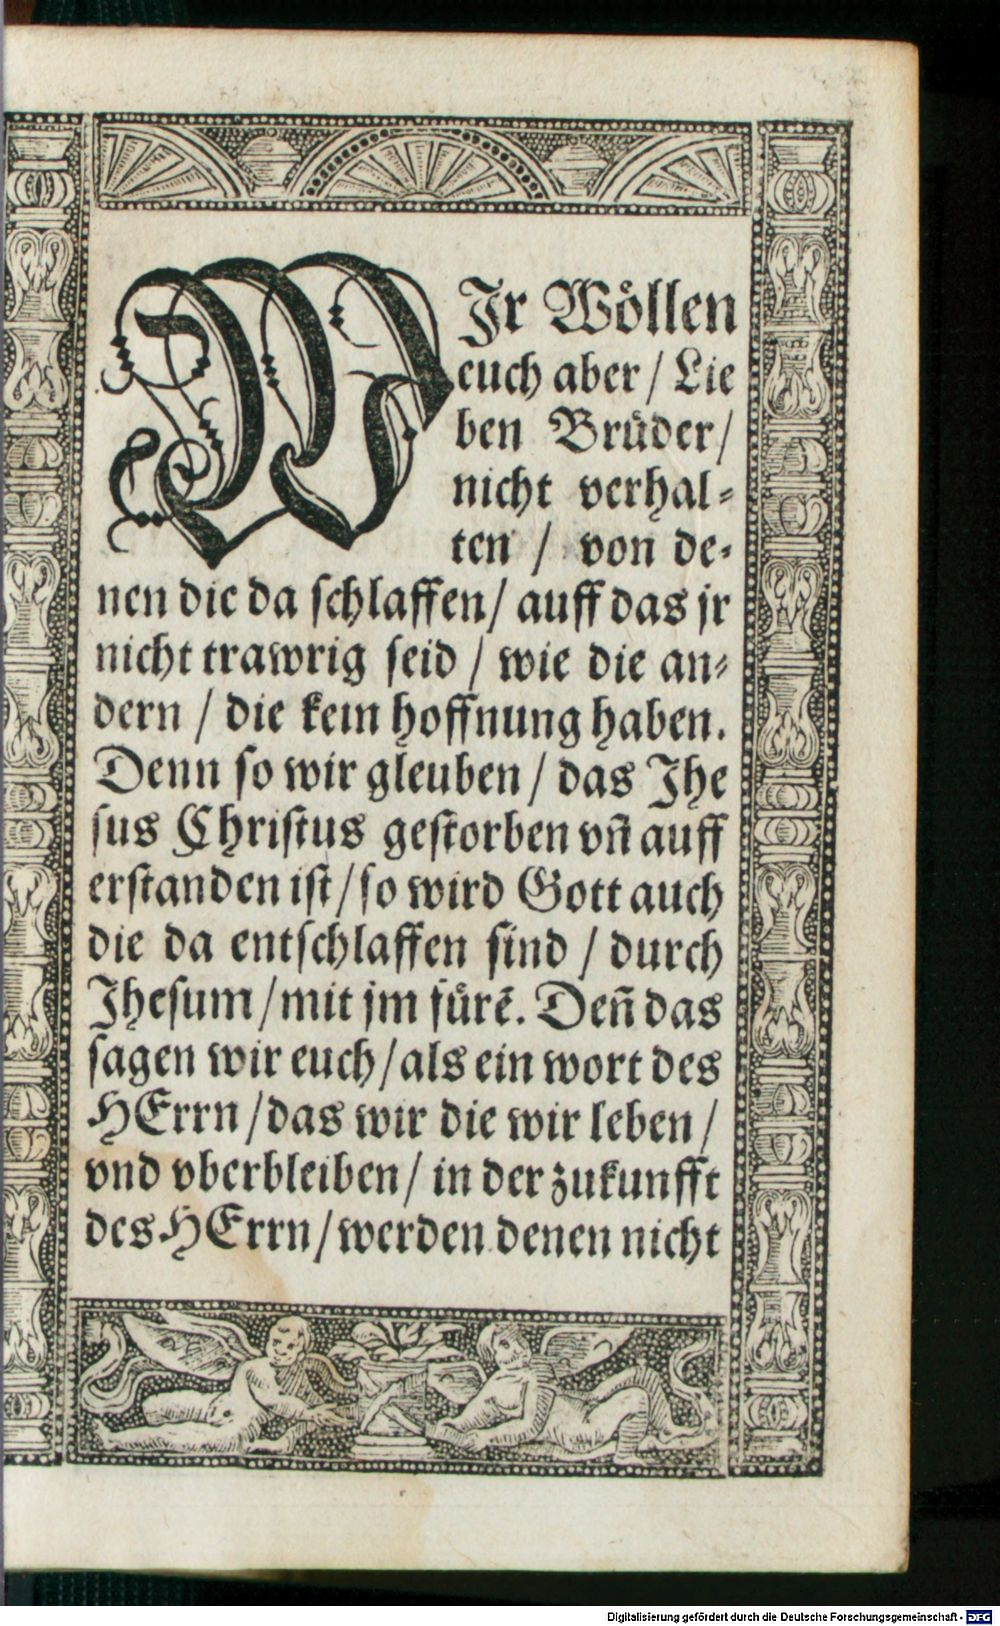 WJr Wöllen
euch aber / Lie
ben Brüder /
nicht verhal⸗
ten / von de⸗
nen die da schlaffen / auff das jr
nicht trawrig seid / wie die an⸗
dern / die kein hoffnung haben.
Denn so wir gleuben / das Jhe
sus Christus gestorben vñ auff
erstanden ist / so wird Gott auch
die da entschlaffen sind / durch
Jhesum / mit jm fürē. Deñ das
sagen wir euch / als ein wort des
HErrn / das wir die wir leben /
vnd vberbleiben / in der zukunfft
des HErrn / werden denen nicht
Digitalisierung gefördert durch die Deutsche Forschungsgemeinschaft - DFG